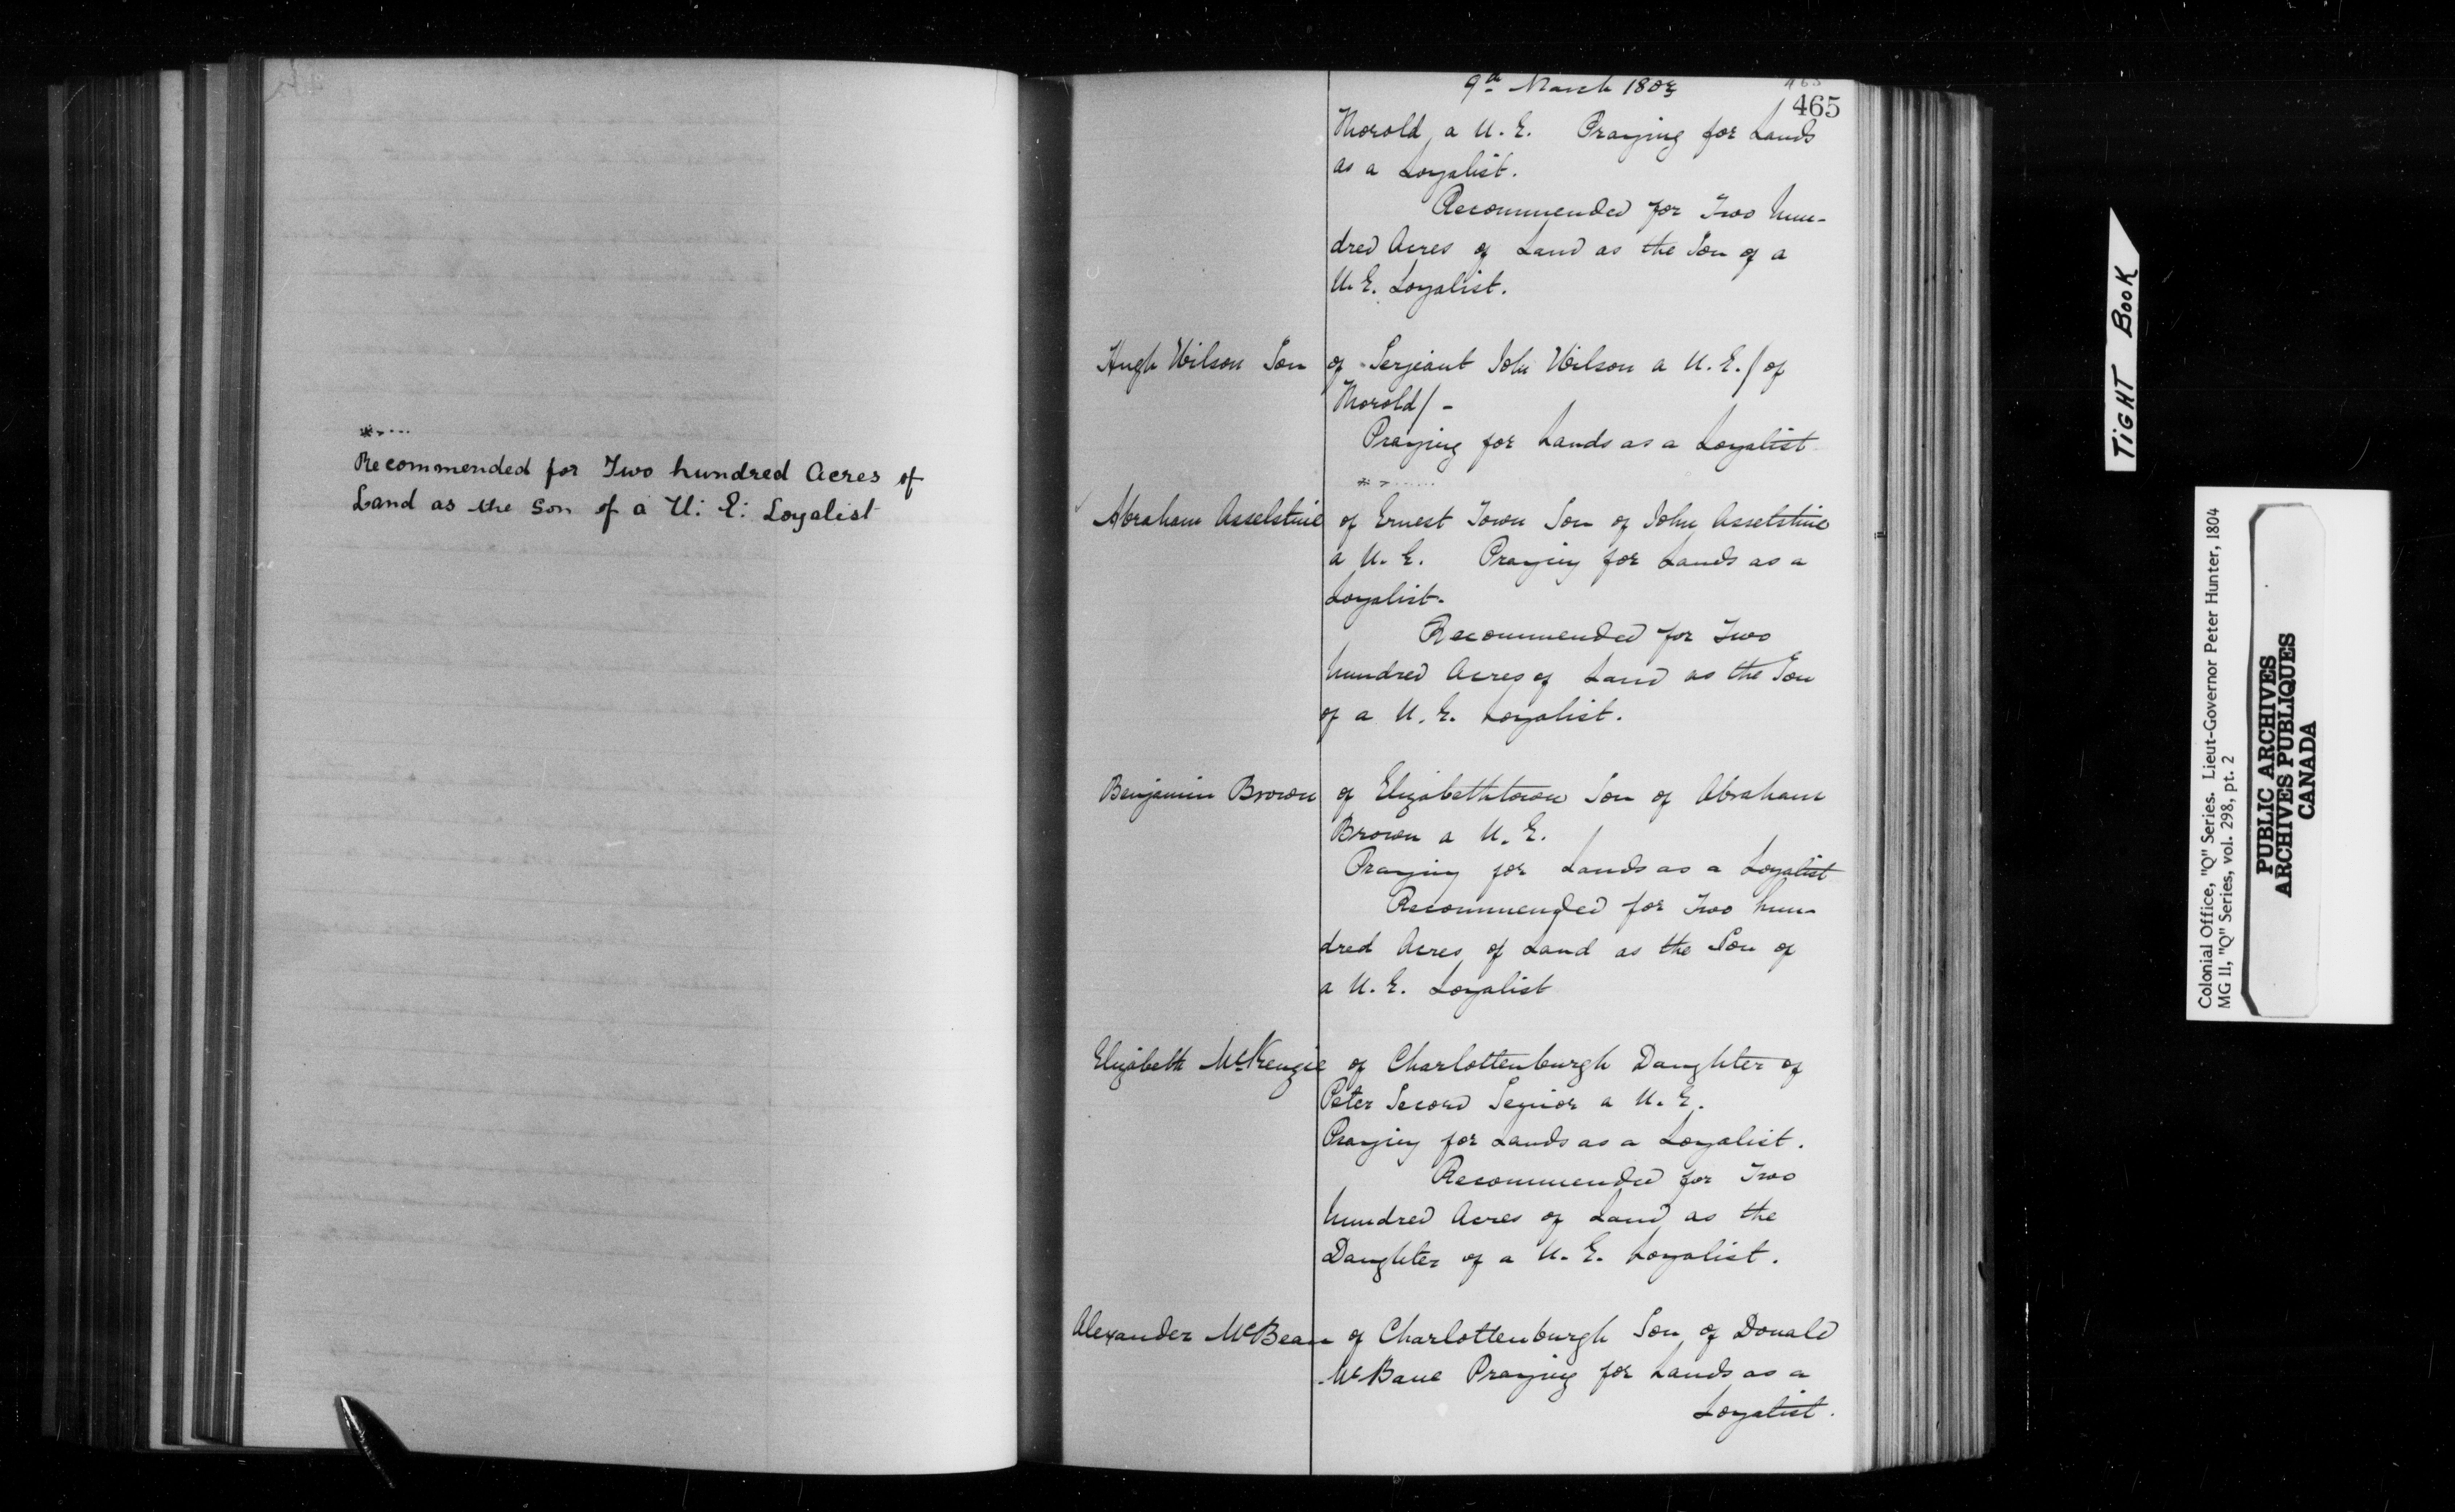 *....
Recommended for Two hundred Acres of
Land as the Son of a U: E: Loyalist
9th March 1803
465
465
Thorold, a U. E. Praying for Lands
as a Loyalist.
Recommended for Two hun-
dred Acres of Land as the Son of a
U. E. Loyalist.
Hugh Wilson Son of Serjeant John Wilson a U. E. / of
Thorold / -
Praying for Lands as a Loyalist
* - ......
Abraham Asselstine of Ernest Town Son of John Asselstine
a U. E. Praying for Lands as a
Loyalist.
Recommended for Two
hundred Acres of Land as the Son
of a U. E. Loyalist.
Benjamin Brown of Elizabethtown Son of Abraham
Brown a U. E.
Praying for Lands as a Loyalist
Recommended for Two hun-
dred Acres of Land as the Son of
a U. E. Loyalist
Elizabeth McKenzie of Charlottenburgh Daughter of
Peter Secord Senior a U. E.
Praying for Lands as a Loyalist.
Recommended for Two
hundred Acres of Land as the
Daughter of a U. E. Loyalist.
Alexander McBean of Charlottenburgh Son of Donald
McBane Praying for Lands as a
Loyalist.
TIGHT BOOK
Colonial Office, "Q" Series. Lieut-Governor Peter Hunter, 1804
MG II, "Q" Series, vol. 298, pt. 2
PUBLIC ARCHIVES
ARCHIVES PUBLIQUES
CANADA